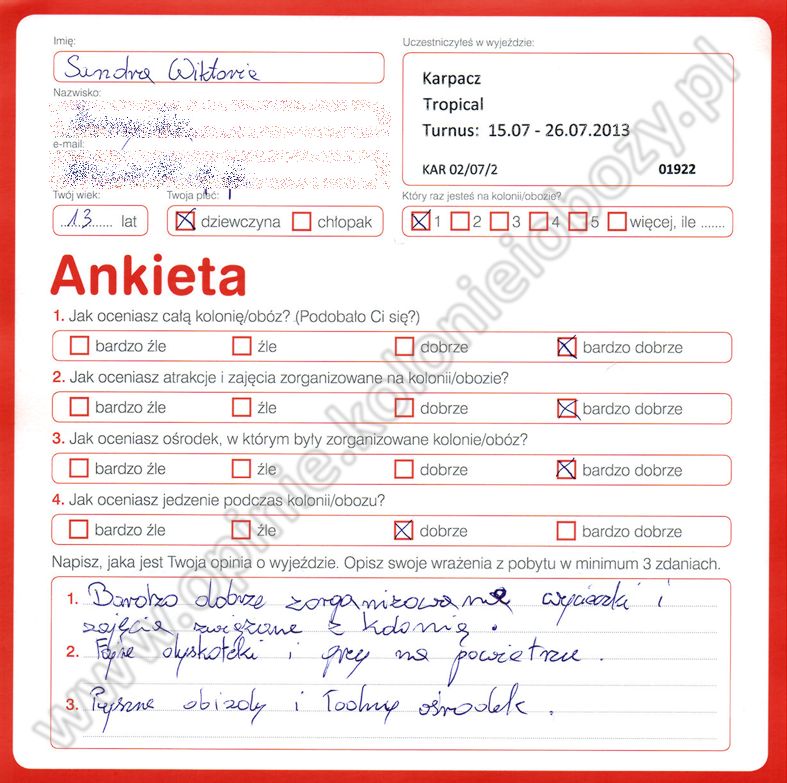 Imię:
Sandra Wiktoria
Uczestniczyłeś w wyjeździe:
Karpacz
Tropical
Turnus: 15.07 - 26.07.2013
KAR 02/07/2 01922
Nazwisko:
e-mail:
Twój wiek:
13 lat
Twoja płeć:
dziewczyna chłopak
Który raz jesteś na kolonii/obozie?
1 2 3 4 5 więcej, ile .......
Ankieta
1. Jak oceniasz całą kolonię/obóz? (Podobało Ci się?)
bardzo źle źle dobrze bardzo dobrze
2. Jak oceniasz atrakcje i zajęcia zorganizowane na kolonii/obozie?
bardzo źle źle dobrze bardzo dobrze
3. Jak oceniasz ośrodek, w którym były zorganizowane kolonie/obóz?
bardzo źle źle dobrze bardzo dobrze
4. Jak oceniasz jedzenie podczas kolonii/obozu?
bardzo źle źle dobrze bardzo dobrze
Napisz, jaka jest Twoja opinia o wyjeździe. Opisz swoje wrażenia z pobytu w minimum 3 zdaniach.
1. Bardzo dobrze zorganizowane wycieczki i
zajęcia związane z kolonią.
2. Fajne dyskoteki i gry na powietrzu.
3. Pyszne obiady i ładny ośrodek.
www.opinie.kolonieiobozy.pl